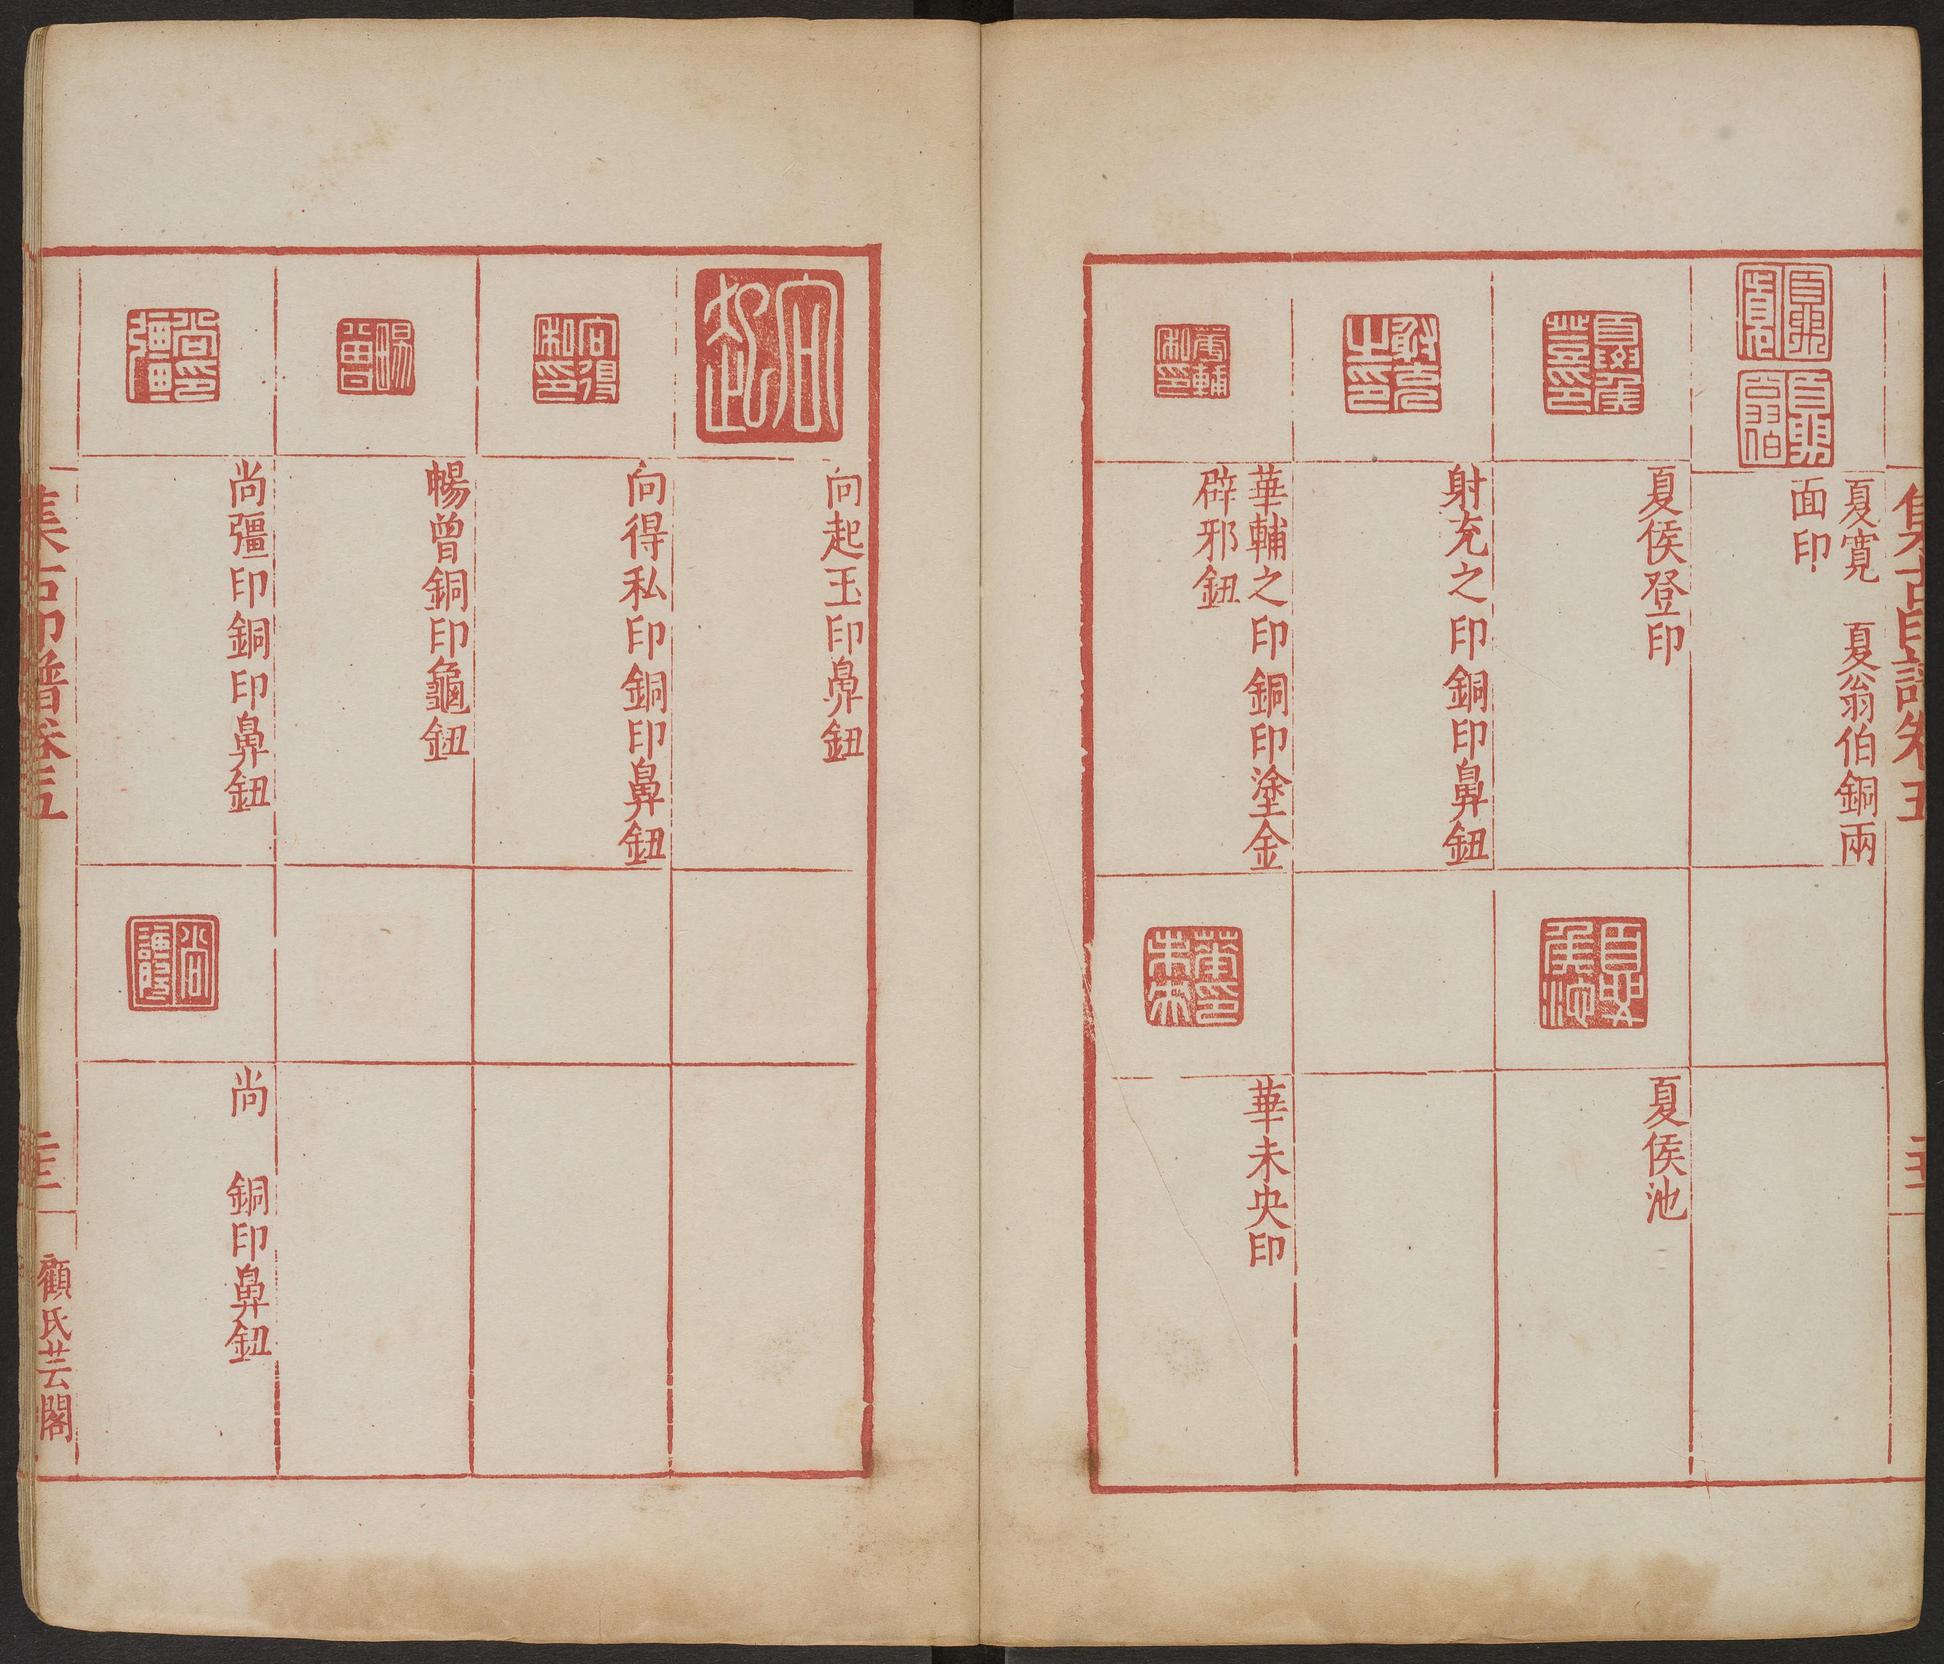 集古印譜卷五
夏寬　夏翁伯銅兩
面印
夏侯登印
夏侯池
射充之印銅印鼻鈕
華輔之印銅印塗金
辟邪鈕
華未央印
向起玉印鼻鈕
向得私印銅印鼻鈕
暢曾銅印龜鈕
尚彊印銅印鼻鈕
尚　銅印鼻鈕
集古印譜卷五
顧氏芸閣